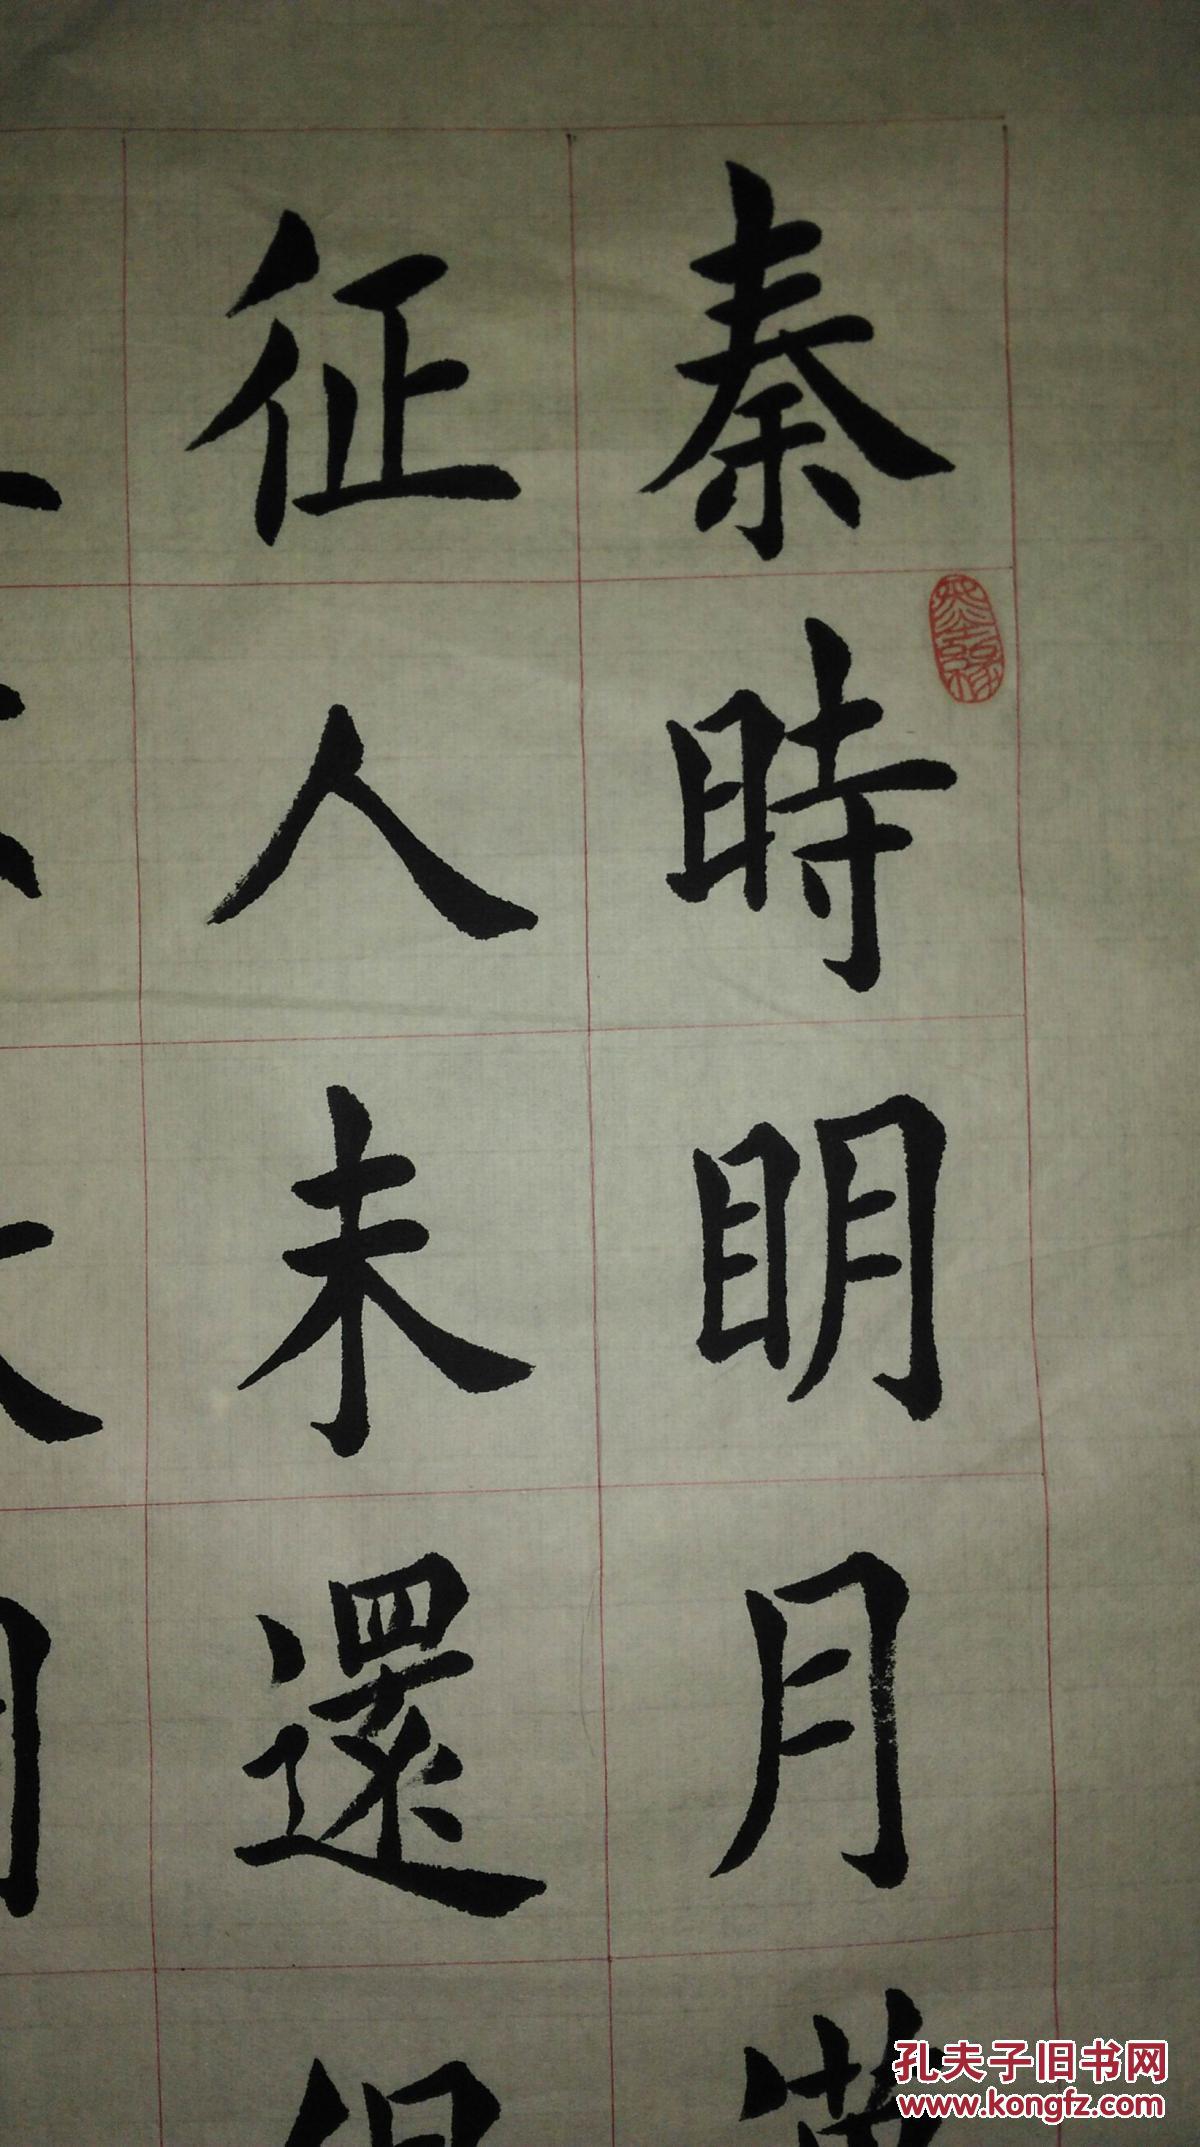 秦時明月
征人未還
孔夫子旧书网
www.kongfz.com